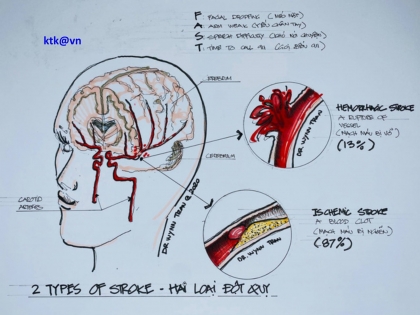 ktk@vn
F: FACIAL DROPPING (MÉO MẶT)
A: ARM WEAK (YẾU CHÂN TAY)
S: SPEECH DIFFICULTY (KHÓ NÓI CHUYỆN)
T: TIME TO CALL 911
CEREBRUM
HEMORRHAGIC STROKE
A RUPTURE OF
VESSEL
(MẠCH MÁU BỊ VỠ)
(13%)
DR WYNN TRAN
CEREBELLUM
CAROTID
ARTERIES
DR WYNN TRAN @ 2020
ISCHEMIC STROKE
A BLOOD CLOT
(MẠCH MÁU BỊ NGHẼN)
(87%)
DR WYNN TRAN
2 TYPES OF STROKE - HAI LOẠI ĐỘT QUỴ